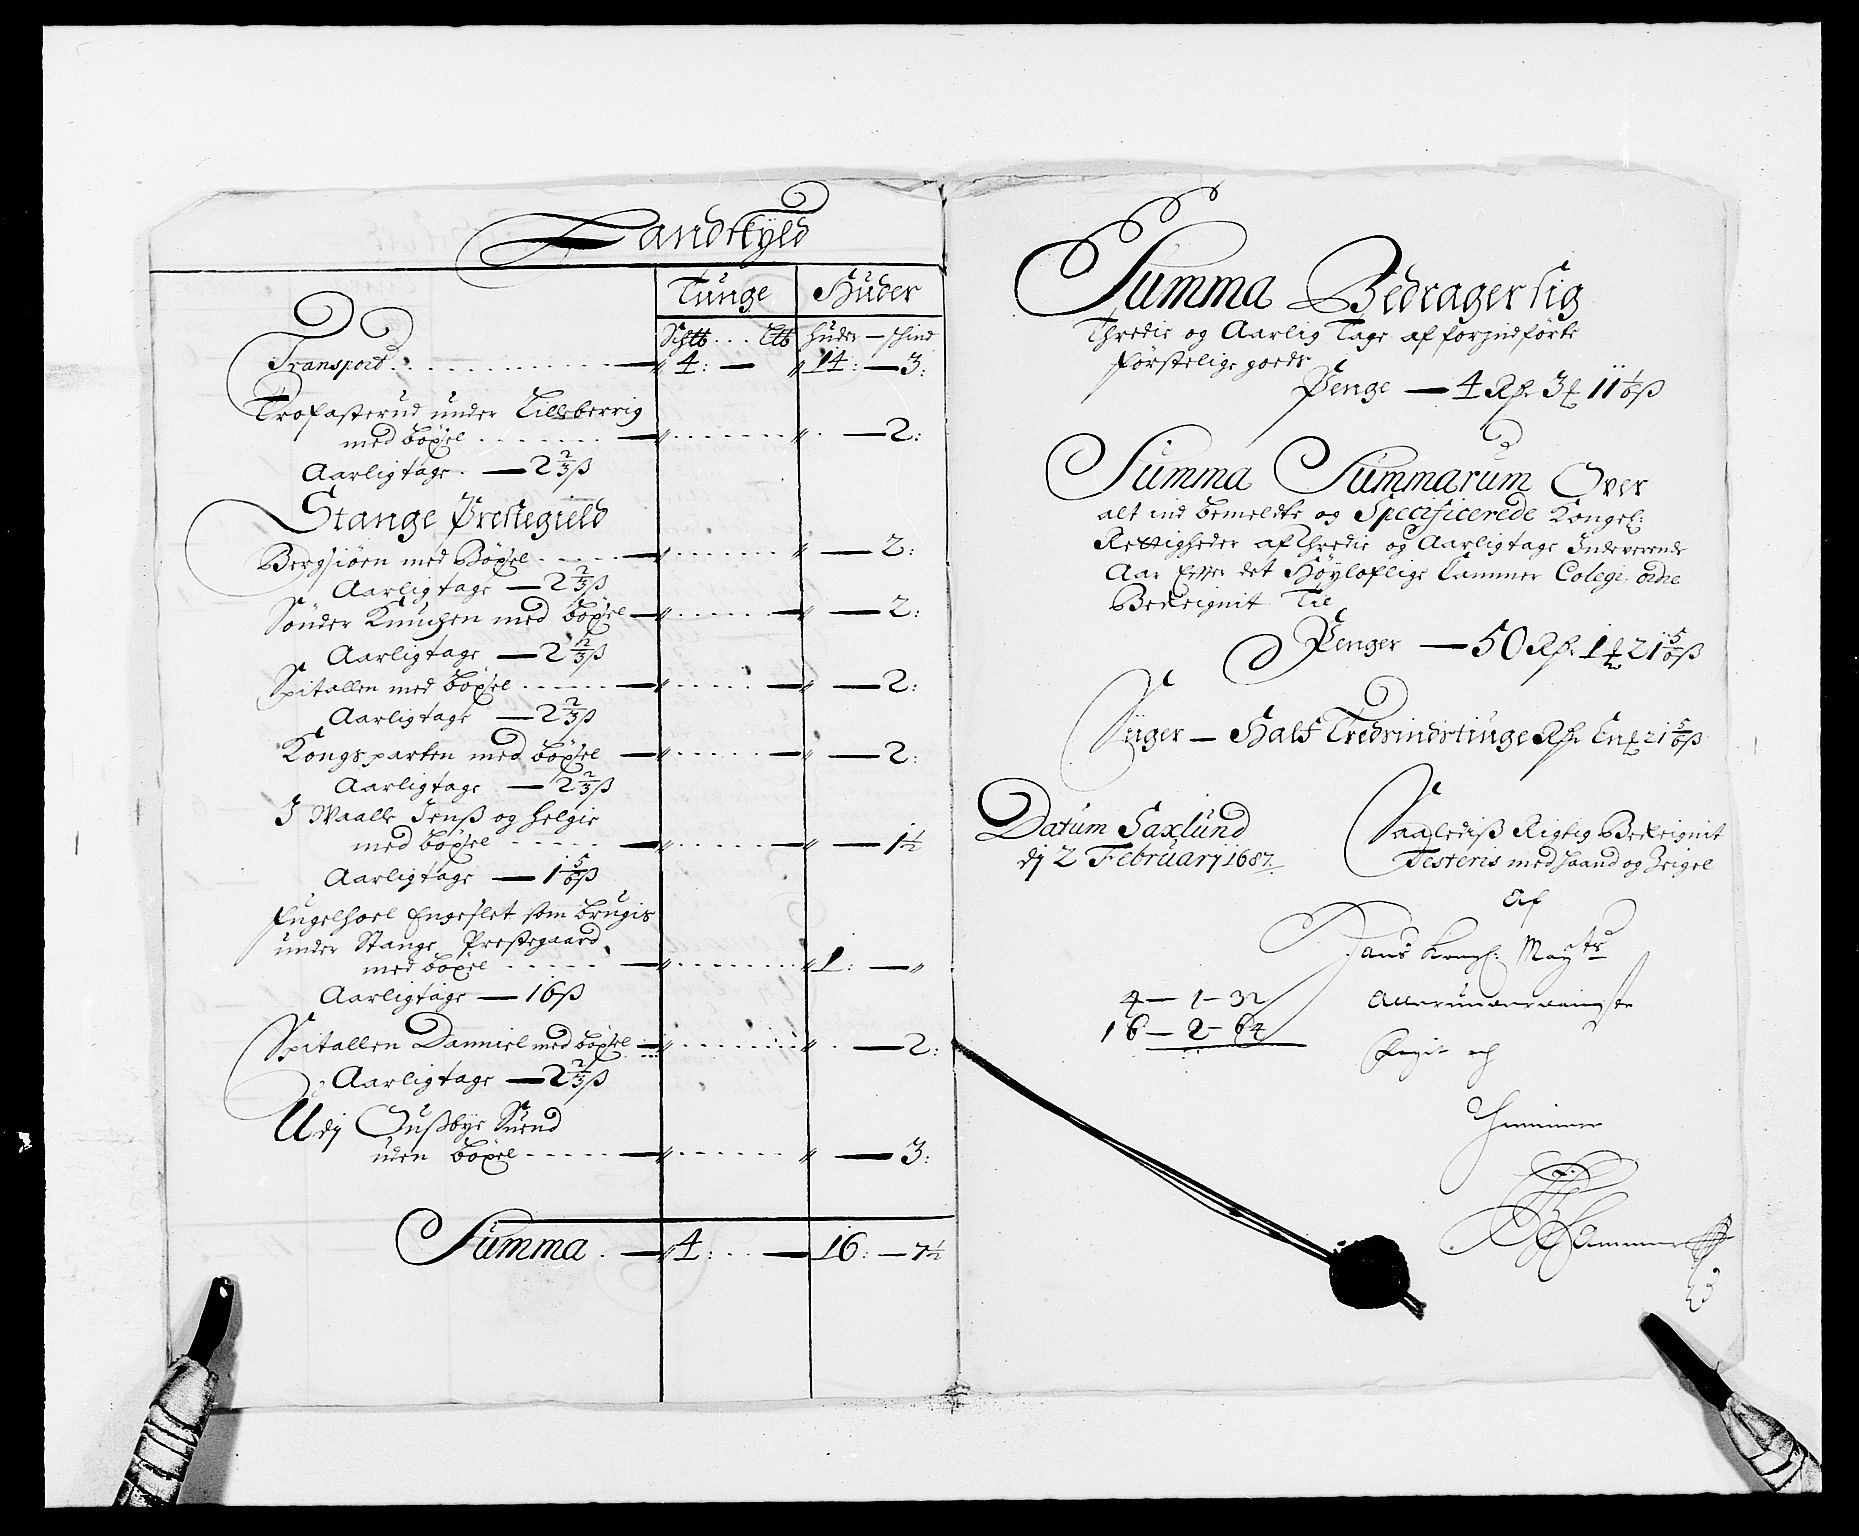 Landskyld
Tunge Huder
Sch℔ . . . L℔ huder — schind
Transport . . . . . . . . . — 〃 4 : — 〃 14 : — 3 :
Trofasterud under Lilleberrig
med böxel . . . . . . . — 〃 . . . . . . 〃 . — 2 :
Aarligtage . — 2 2/3 ß
Stange Prestegield
Bergsiöen med Böxel . . . . . — 〃 . . . . . . 〃 — 2 :
Aarligtage — 2 2/3 ß
Sönder Kinchen med böxel — 〃 . . . . . — 〃 — 2 :
Aarligtage — 2 2/3 ß
Spitallen med böxel . . . . . . — 〃 . . . . . — 〃 — 2 :
Aarligtage — 2 2/3 ß
Kongsparten med böxel — 〃 . . . . . — 〃 — 2 :
Aarligtage — 2 2/3 ß
I Waalle Jenß og helgie
med böxel . . . . . — 〃 . . . . . — 〃 — 1 1/2
Aarligtage — 1 5/6 ß
Engeslet som brugis
under Stange Prestegaard
med böxel . . . . . — 〃 . . . . . . 〃 1 : — 〃
Aarligtage — 16 ß
Spitallen Danniel med böxel — 〃 . . . . . . 〃 . — 2 :
Aarligtage — 2 2/3 ß
Udj Ousbye Suend
uden böxel . . . . . — 〃 . . . . . . 〃 — 3 :
Summa . — 〃 4 : . . — 16 : — 7 1/2
Summa Bedrager sig
Thredie og Aarlig Tage af forindförte
förstelige goeds
Penge — 4 Rß 3 11 1/6 ß
Summa Summarum Over
alt ind bemeldte og Specificerede Kongel:
Rettigheder af Thredie og Aarligtage Indeverende
Aar Efter det Höyloflige Cammer Colegi ordre
Bereignit Til
Penger — 50 Rß 1 21 5/6 ß
Siger — Halftredsindstiuge Rß En 21 5/6 ß
Datum Saxlund
dj 2 Februarj 1687
Saaledis Rigtig Bereignit
Testeris med haand og Zeigel
Af
hans Kongl: Maytz
4 — 1 — 32
16 — 2 — 64
Allerunderdanigste